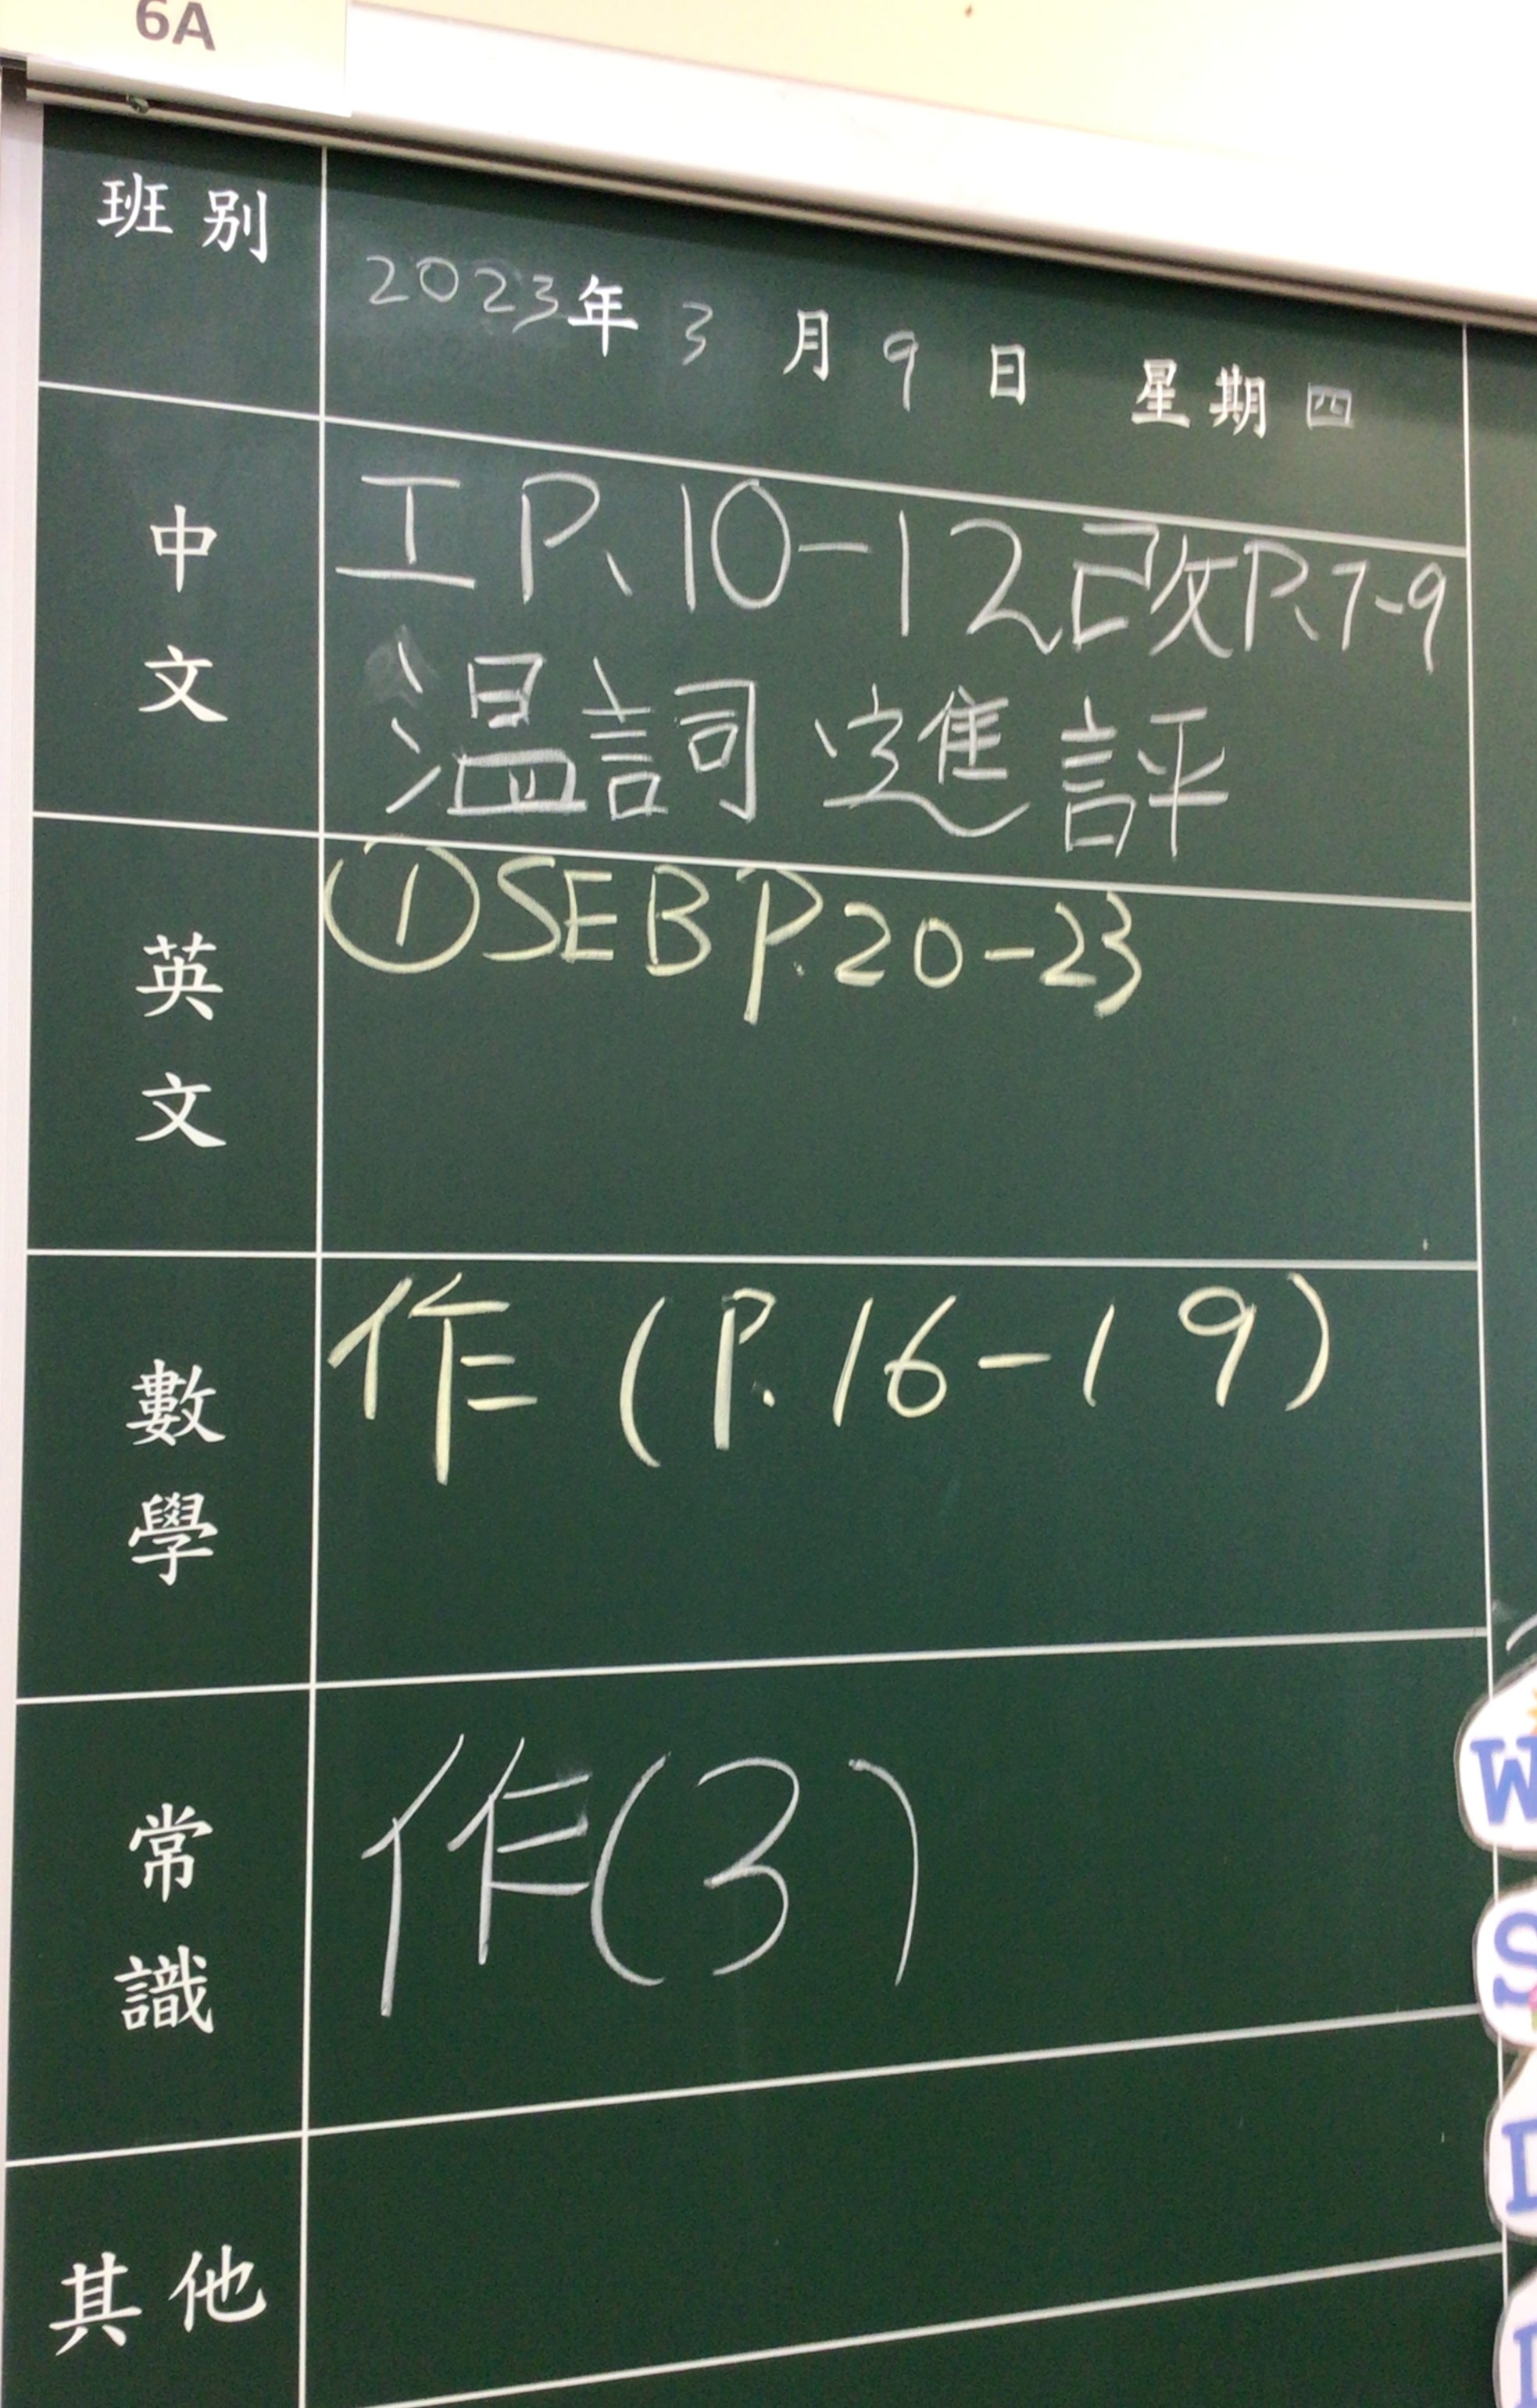 6A
班別
2023年 3 月 9 日 星期四
中文
工 P.10-12 改 P.7-9
溫詞 進評
英文
① SEB P.20-23
數學
作 (P.16-19)
常識
作(3)
其他
W
S